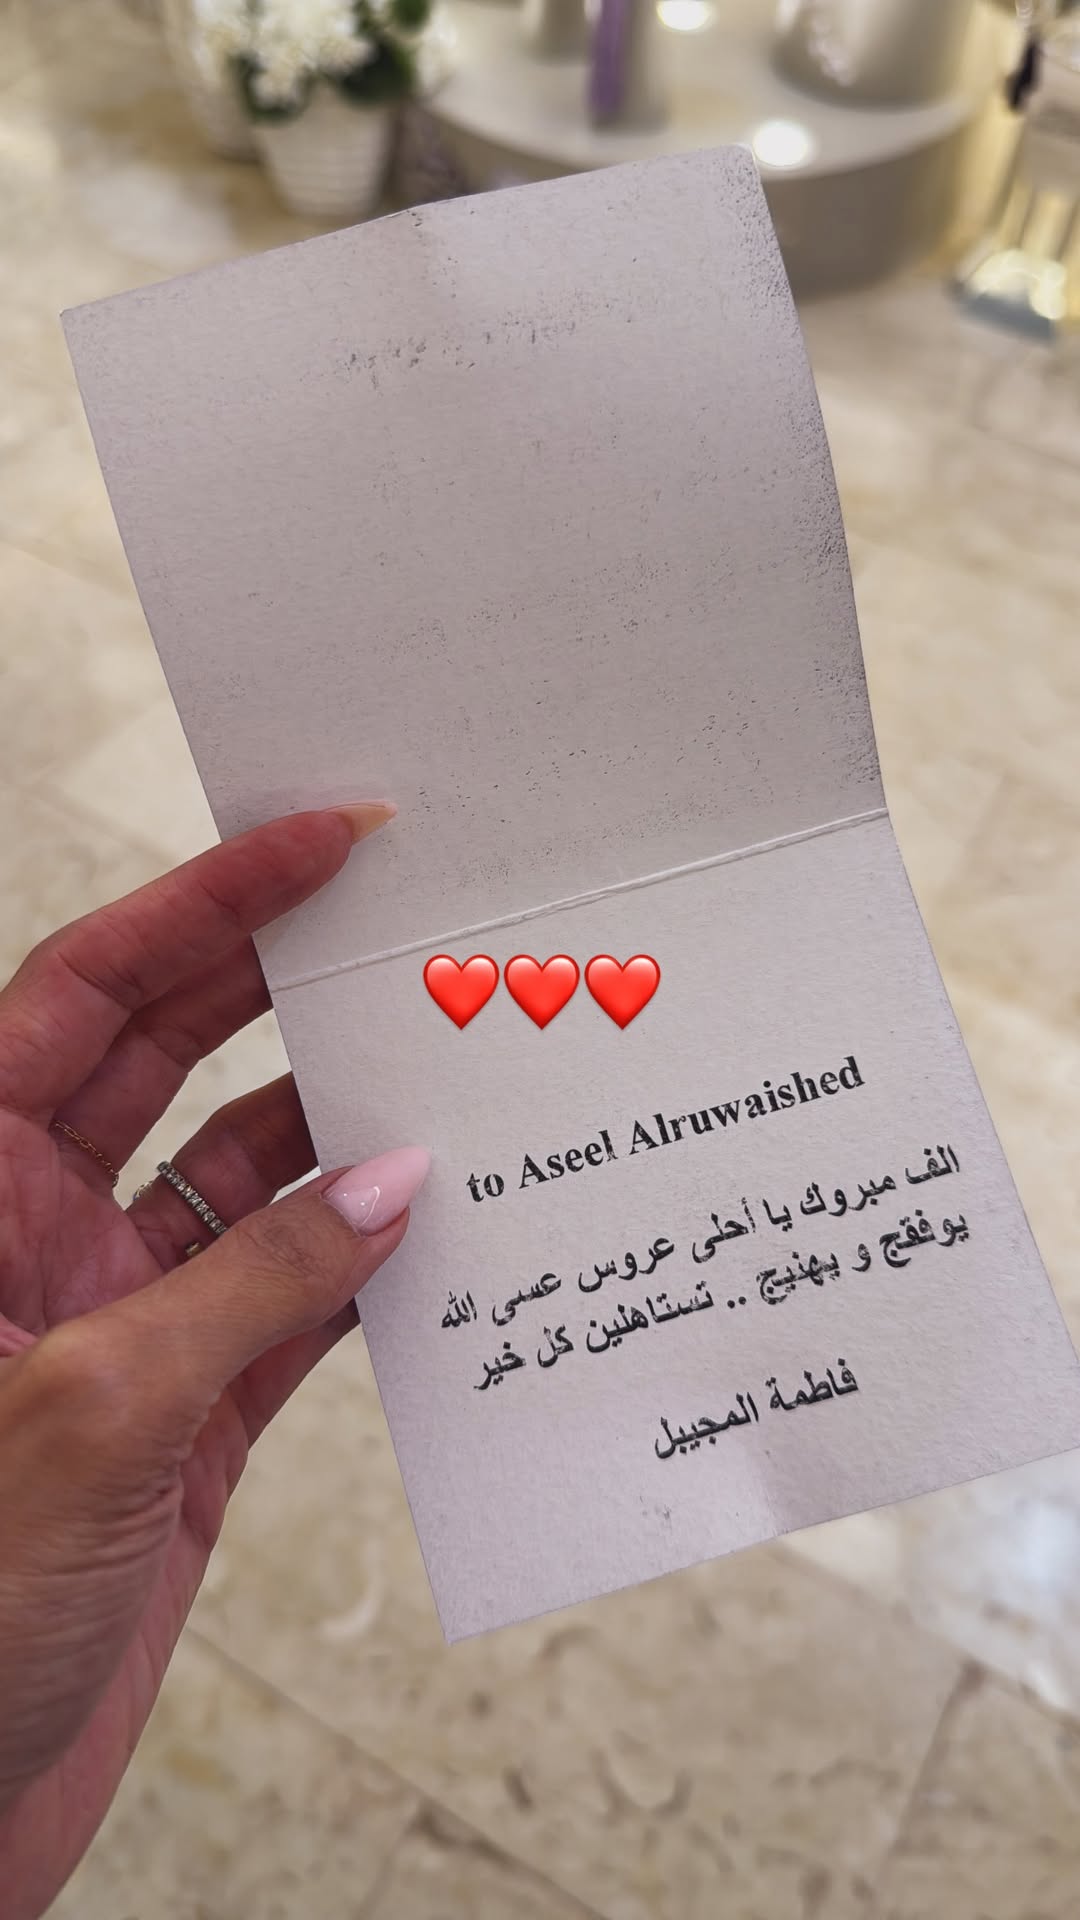 ❤️❤️❤️
to Aseel Alruwaished
الف مبروك يا أحلى عروس عسى الله
يوفقج و يهنيج .. تستاهلين كل خير
فاطمة المجيبل